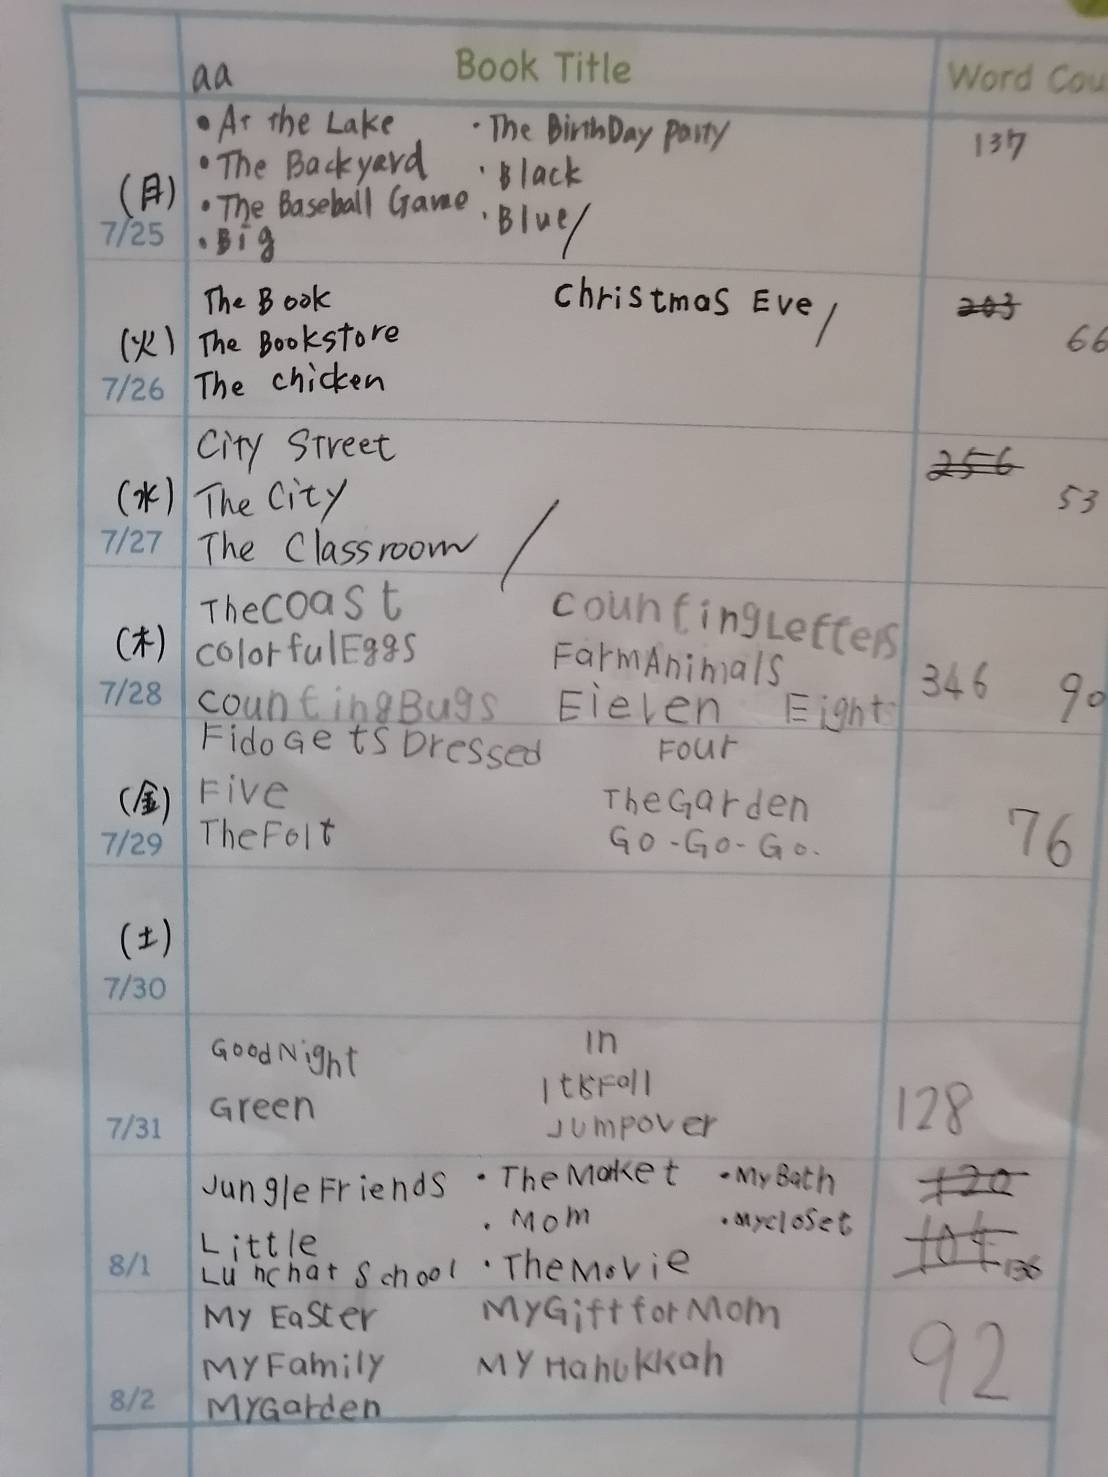 aa Book Title Word Cou
• At the Lake • The BirthDay party 137
• The Backyard • Black
(月) • The Baseball Game • Blue/
7/25 • Big
The Book Christmas Eve / 203
(火) The Bookstore 66
7/26 The chicken
City Street 256
(水) The City 53
7/27 The Classroom /
TheCoast countingLetters
(木) colorfulEggs FarmAnimals 346 90
7/28 countingBugs Eleven Eight
FidoGetsDressed Four
(金) Five TheGarden 76
7/29 TheFolt Go-Go-Go.
(土)
7/30
GoodNight In
ItsFall
Green 128
7/31 Jumpover
JungleFriends • TheMarket • MyBath 120
Little • Mom • Mycloset 104
8/1 Lunchat School • TheMovie 136
My Easter MyGiftforMom
MyFamily My Hanukkah 92
8/2 MyGarden